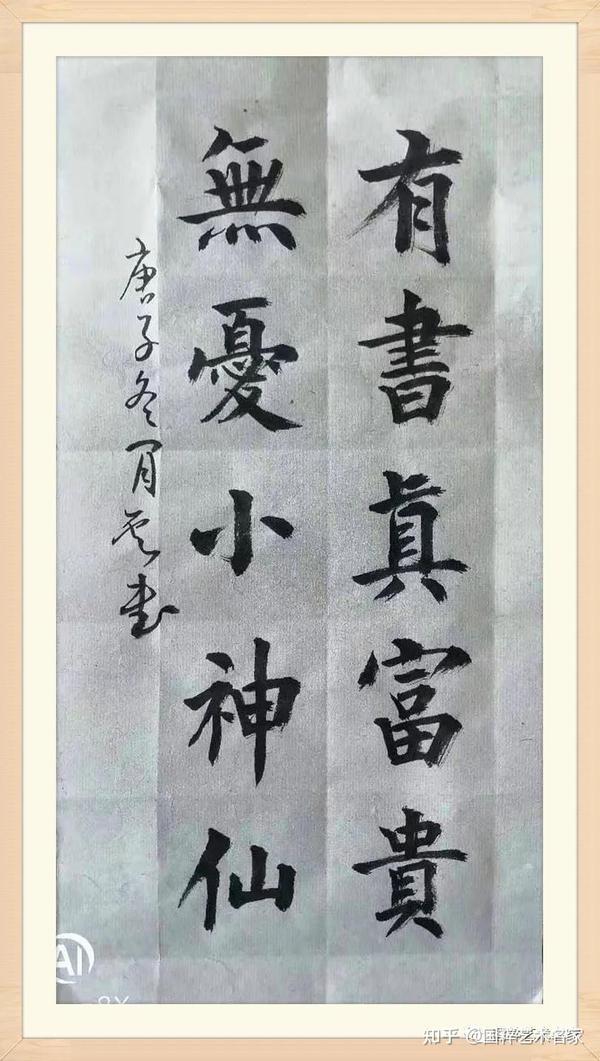 有書真富貴
無憂小神仙
庚子冬月雲書
AI
知乎 @国粹艺术名家